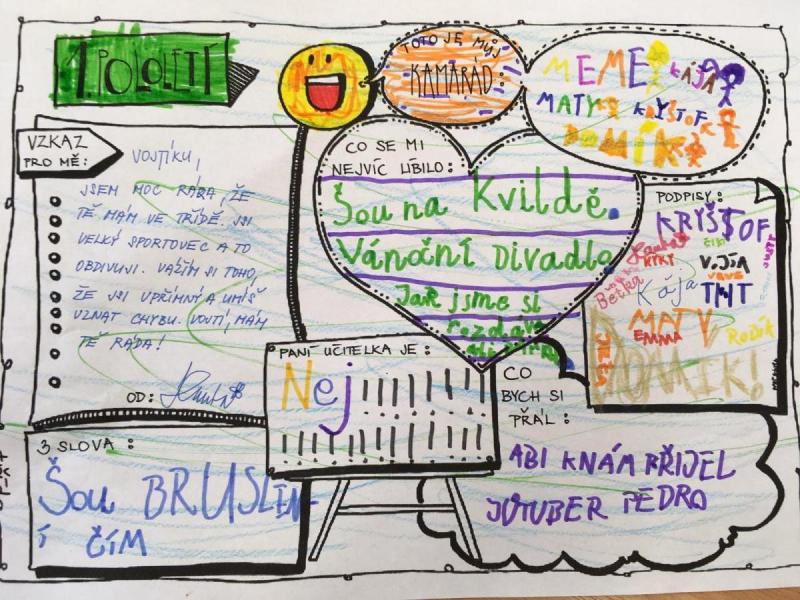 1. POLOLETÍ
TOTO JE MŮJ
KAMARÁD:
MEME KÁJA
MATY KRYŠTOF
DOMIK
VZKAZ
PRO MĚ:
VOJTÍKU,
JSEM MOC RÁDA, ŽE
TĚ MÁM VE TŘÍDĚ. JSI
VELKÝ SPORTOVEC A TO
OBDIVUJI. VÁŽÍM SI TOHO,
ŽE JSI UPŘÍMNÝ A UMÍŠ
UZNAT CHYBU. VOJTÍ, MÁM
TĚ RÁDA!
OD:
CO SE MI
NEJVÍC LÍBILO:
Šou na Kvildě.
Vánoční Divadlo
Jak jsme si
rozdáva
PODPISY:
KRYŠTOF
KYKY
V.JÍA
Bětka
Kája
TMT
MATY
EMMA
DOMIK!
PANÍ UČITELKA JE:
Nej
CO
BYCH SI
PŘÁL:
ABI KNÁM PŘIJEL
JUTUBER PEDRO
3 SLOVA:
Šou BRUSLEN-
Í ČÍM